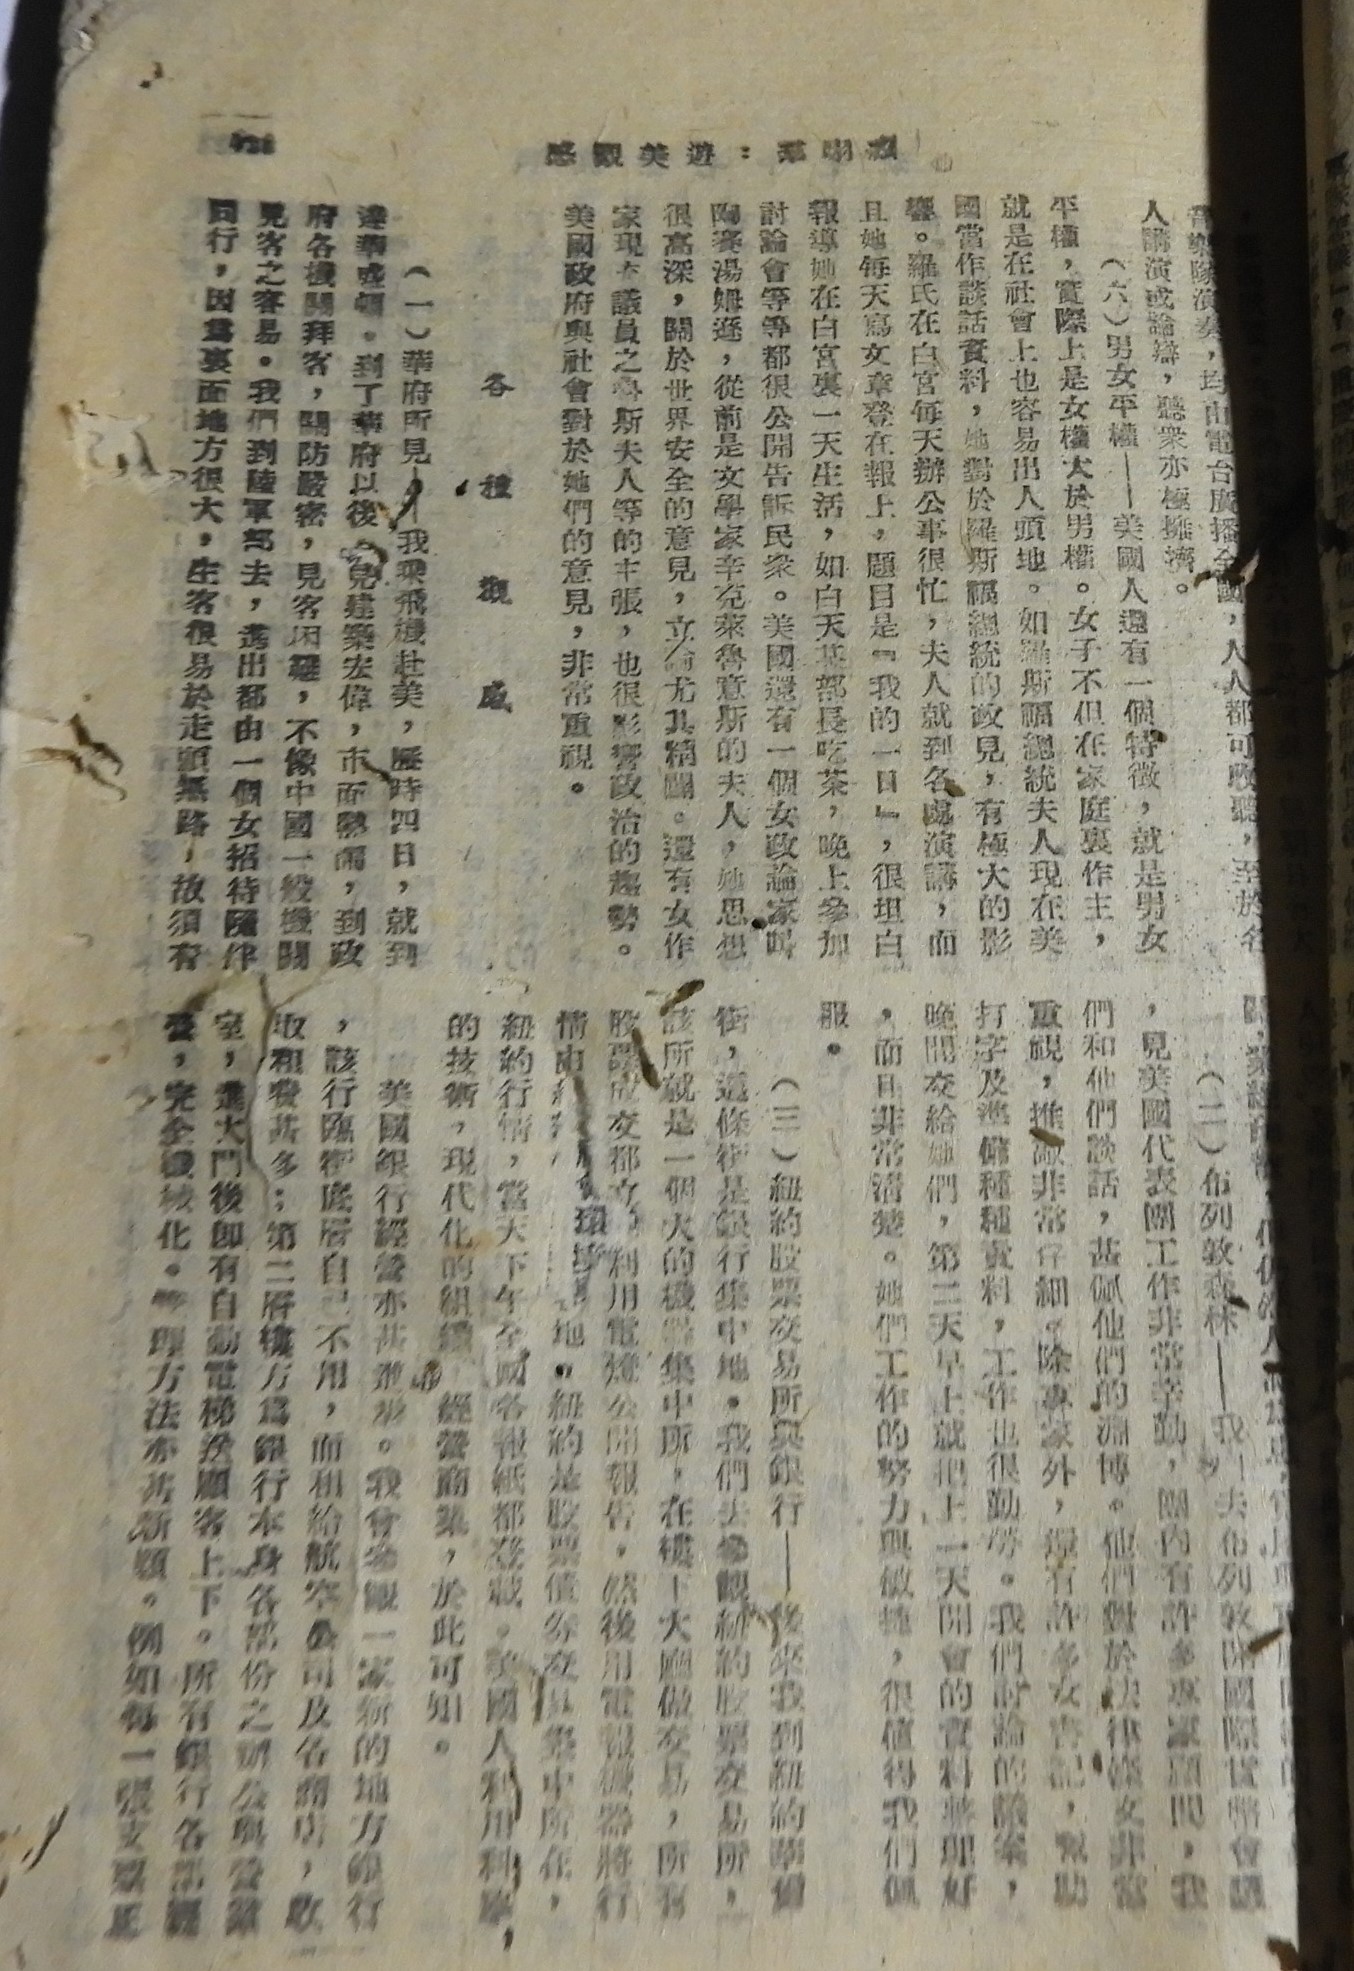 遊美觀感
音樂隊演奏，均由電台廣播全國，人人都可收聽，至於名
人講演或論辯，聽衆亦極擁擠。
（六）男女平權——美國人還有一個特徵，就是男女
平權，實際上是女權大於男權。女子不但在家庭裏作主，
就是在社會上也容易出人頭地。如羅斯福總統夫人現在美
國當作談話資料，她對於羅斯福總統的政見，有極大的影
響。羅氏在白宮每天辦公事很忙，夫人就到各處演講，而
且她每天寫文章登在報上，題目是『我的一日』，很坦白
報導她在白宮裏一天生活，如白天某部長吃茶，晚上參加
討論會等等都很公開告訴民衆。美國還有一個女政論家叫
陶賽湯姆遜，從前是文學家辛克萊魯意斯的夫人，她思想
很高深，關於世界安全的意見，立論尤其精闢。還有女作
家現在議員之魯斯夫人等的主張，也很影響政治的趨勢。
美國政府與社會對於她們的意見，非常重視。
各種觀感
（一）華府所見——我乘飛機赴美，歷時四日，就到
達華盛頓。到了華府以後，見建築宏偉，市面熱鬧，到政
府各機關拜客，關防嚴密，見客困難，不像中國一般機關
見客之容易。我們到陸軍部去，進出都由一個女招待陪伴
同行，因爲裏面地方很大，生客很易於走頭無路，故須有
（二）布列敦森林——我去布列敦開國際貨幣會議
，見美國代表團工作非常辛勤，團內有許多專家顧問，我
們和他們談話，甚佩他們的淵博。他們對於法律條文非常
重視，推敲非常仔細。除專家外，還有許多女書記，幫助
打字及準備種種資料，工作也很勤勞。我們討論的議案，
晚間交給她們，第二天早上就把上一天開會的資料整理好
，而且非常清楚。她們工作的努力與敏捷，很值得我們佩
服。
（三）紐約股票交易所與銀行——後來我到紐約華爾
街，這條街是銀行集中地。我們去參觀紐約股票交易所，
該所就是一個大的機器集中所，在樓下大廳做交易，所有
股票成交都立 利用電燈公開報告，然後用電報機器將行
情由 環球 地。紐約是股票債券交易集中所在，
紐約行情，當天下午全國各報紙都登載。美國人利用科學，
的技術，現代化的組織 經營商業，於此可知。
美國銀行經營亦甚進步。我會參觀一家新的地方銀行
，該行臨街底層自己不用，而租給航空公司及各商店，收
取租費甚多；第二層樓方爲銀行本身各部份之辦公與營業
室，進大門後卽有自動電梯接顧客上下。所有銀行各部
，完全機械化。管理方法亦甚新穎。例如每一張支票正